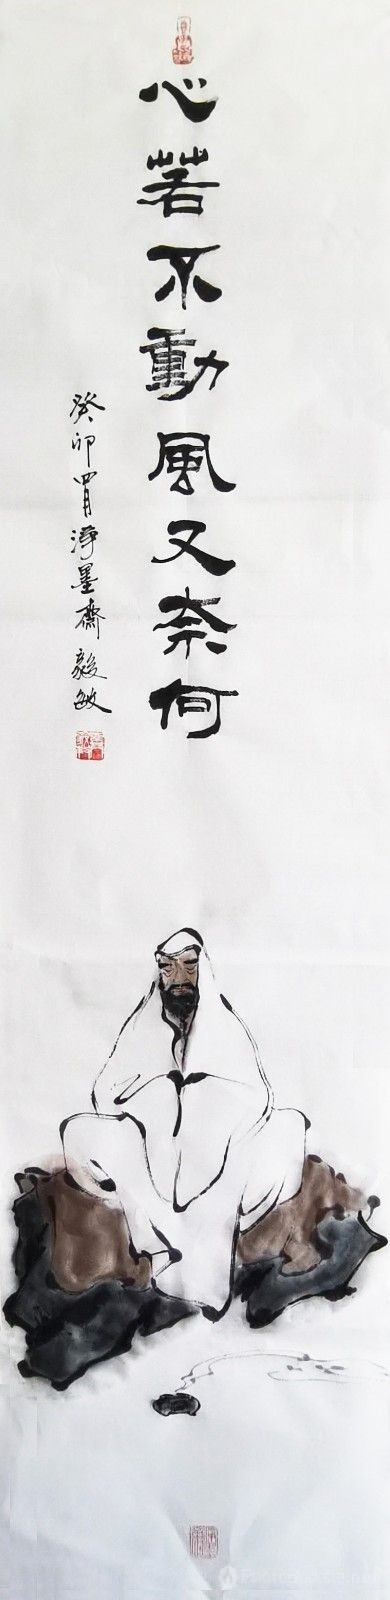 心若不動風又奈何
癸卯四月淨墨齋毅敏